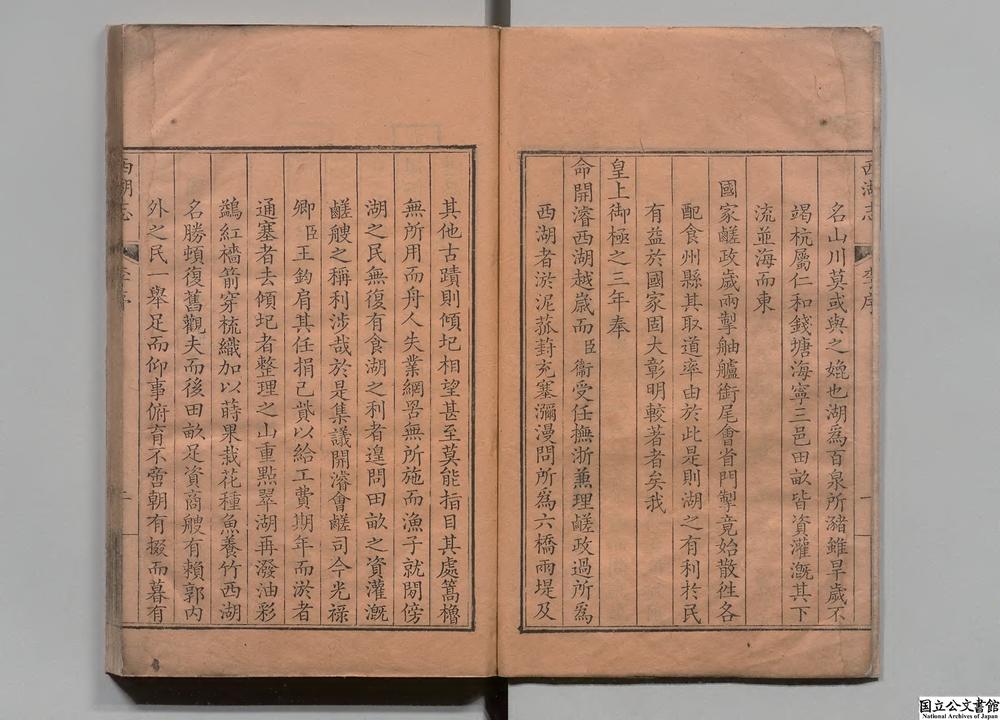 西湖志
李序
一
名山川莫或與之媲也湖爲百泉所豬雖旱歲不
竭杭屬仁和錢塘海寧三邑田畝皆資灌漑其下
流並海而東
國家鹺政歲兩掣舳艫銜尾會省門掣竟始散徃各
配食州縣其取道率由於此是則湖之有利於民
有益於國家固大彰明較著者矣我
皇上御極之三年奉
命開濬西湖越歲而臣衞受任撫浙兼理鹺政過所爲
西湖者淤泥菰葑充塞瀰漫問所爲六橋兩堤及
其他古蹟則傾圮相望甚至莫能指目其處篙櫓
無所用而舟人失業網罟無所施而漁子就閒傍
湖之民無復有食湖之利者遑問田畝之資灌漑
鹺艘之稱利涉哉於是集議開濬會鹺司今光祿
卿臣王鈞肩其任捐己貲以給工費期年而淤者
通塞者去傾圮者整理之山重點翠湖再潑油彩
鷁紅檣箭穿梳織加以蒔果栽花種魚養竹西湖
名勝頓復舊觀夫而後田畝足資商艘有賴郭内
外之民一舉足而仰事俯育不啻朝有掇而暮有
西湖志
李序
二
国立公文書館
National Archives of Japan